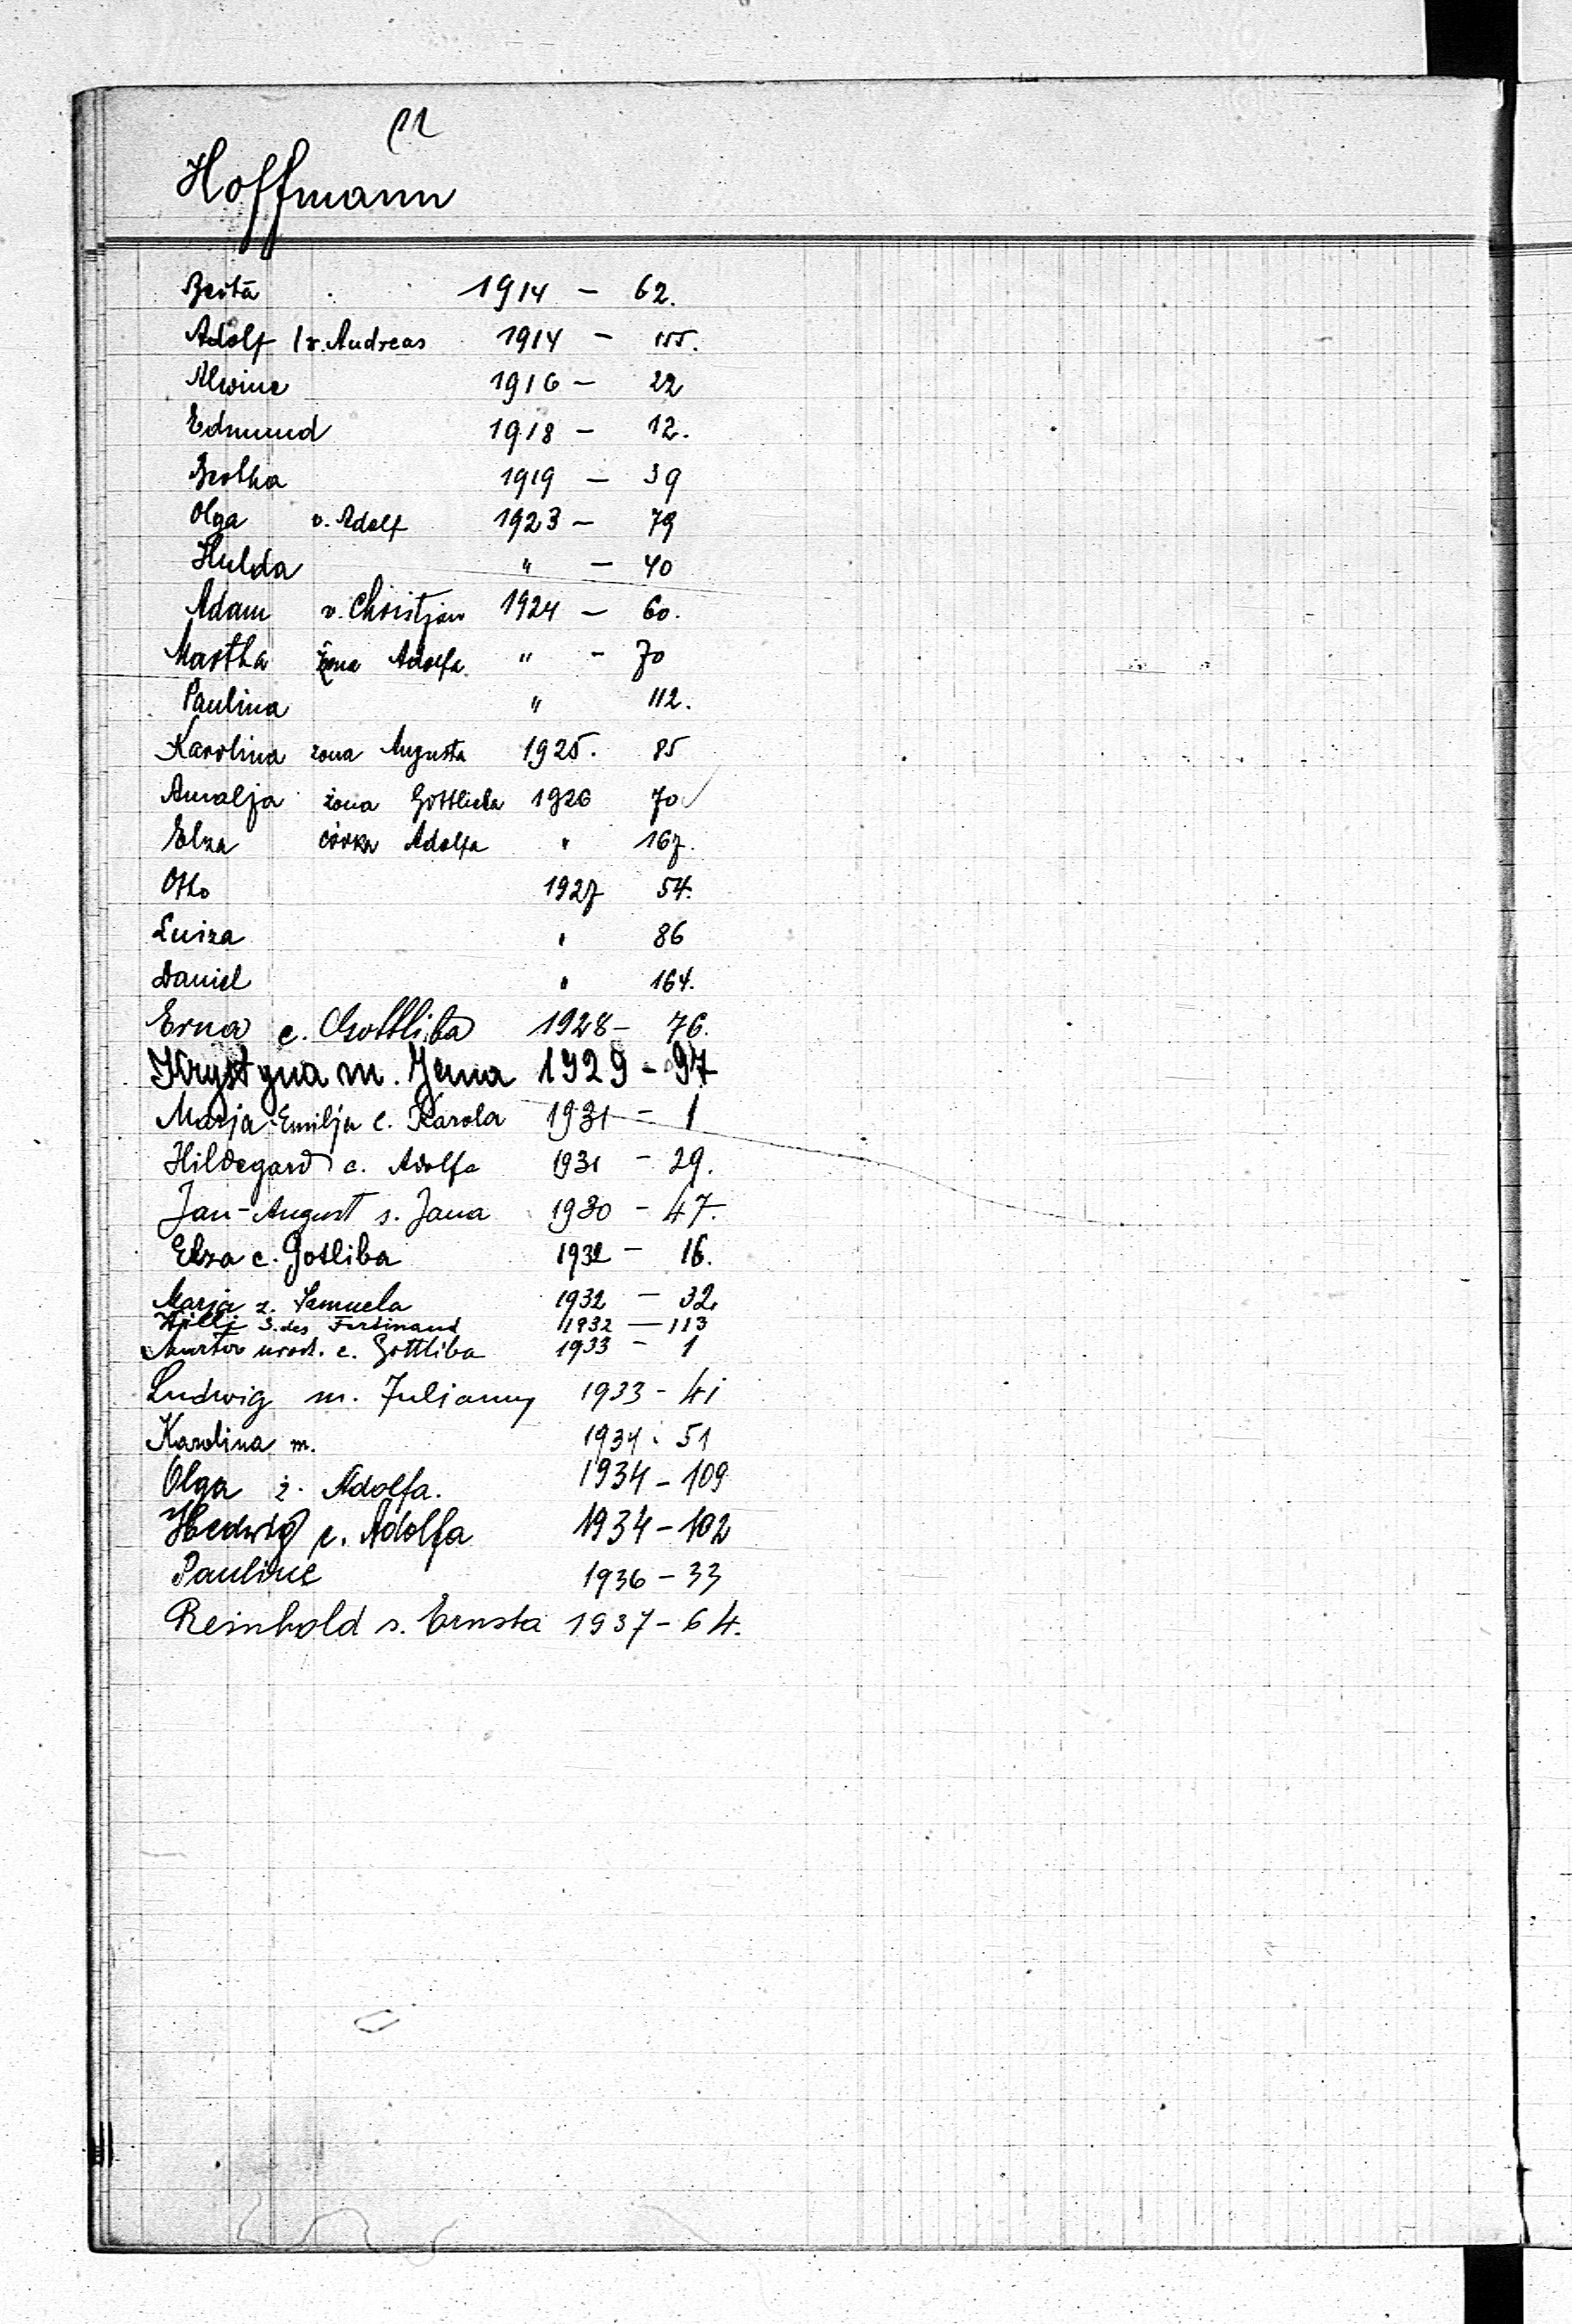 Hoffmann
Berta 1914 - 62.
Adolf v. Andreas 1914 - 155.
Alwine 1916 - 22
Edmund 1918 - 12.
1919 - 39
Olga v. Adolf 1923 - 79
Hulda " - 40
Adam v. Christjan 1924 - 60.
Martha żona Adolfa " - 70
Paulina " 112.
Karolina żona Augusta 1925. 85
Amalja żona Gottlieba 1926 70
Elza córka Adolfa " 167.
Otto 1927 54.
Luiza " 86
Daniel " 164.
Erna c. Gottliba 1928 - 76.
Krystyna m. 1929 - 97
Marja-Emilja c. Karola 1931 - 1
Hildegard c. Adolfa 1931 - 29.
Jan-August s. Jana 1930 - 47.
Elza c. Gotliba 1932 - 16.
Marja z. Samuela 1932 - 32.
Willi S. des Ferdinand 1932 - 113
c. Gottliba 1933 - 1
Ludwig m. Julianny 1933 - 41
Karolina m. 1934. 51
Olga ż. Adolfa. 1934 - 109
Hedwig c. Adolfa 1934 - 102
Pauline 1936 - 33
Reinhold s. Ernsta 1937 - 64.